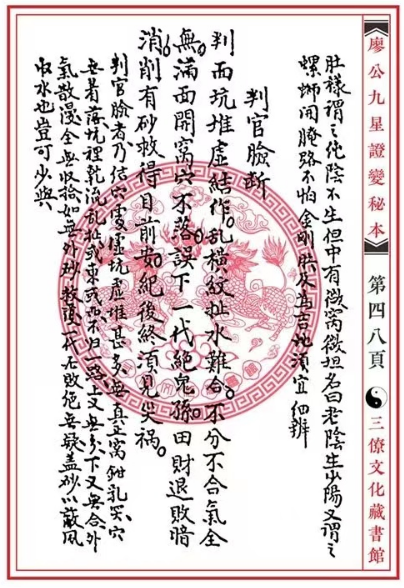 《廖公九星證變秘本》
第四八頁
三僚文化藏書館
肚樣謂之純陰不生但中有微窩微坦名曰老陰生少陽又謂之
螺螄開腌路不怕金剛真吉地須宜細辨
判官臉斷
判面坑堆虛結作。亂橫紋扯水難合。不分不合氣全
無。滿面開窩穴不落。誤下一代絕兒孫。田財退敗暗
消削。有砂救得目前安。絕後終須見哭禍。
判官臉者乃結穴處虛坑虛堆甚多無真正窩鉗乳突穴
無着落坑裡乾流亂扯或東或西不归一路上又無分下又無合外
氣散漫全無收拾如無外砂救護一代敗絕無疑蓋砂以蔽风
收水也豈可少與